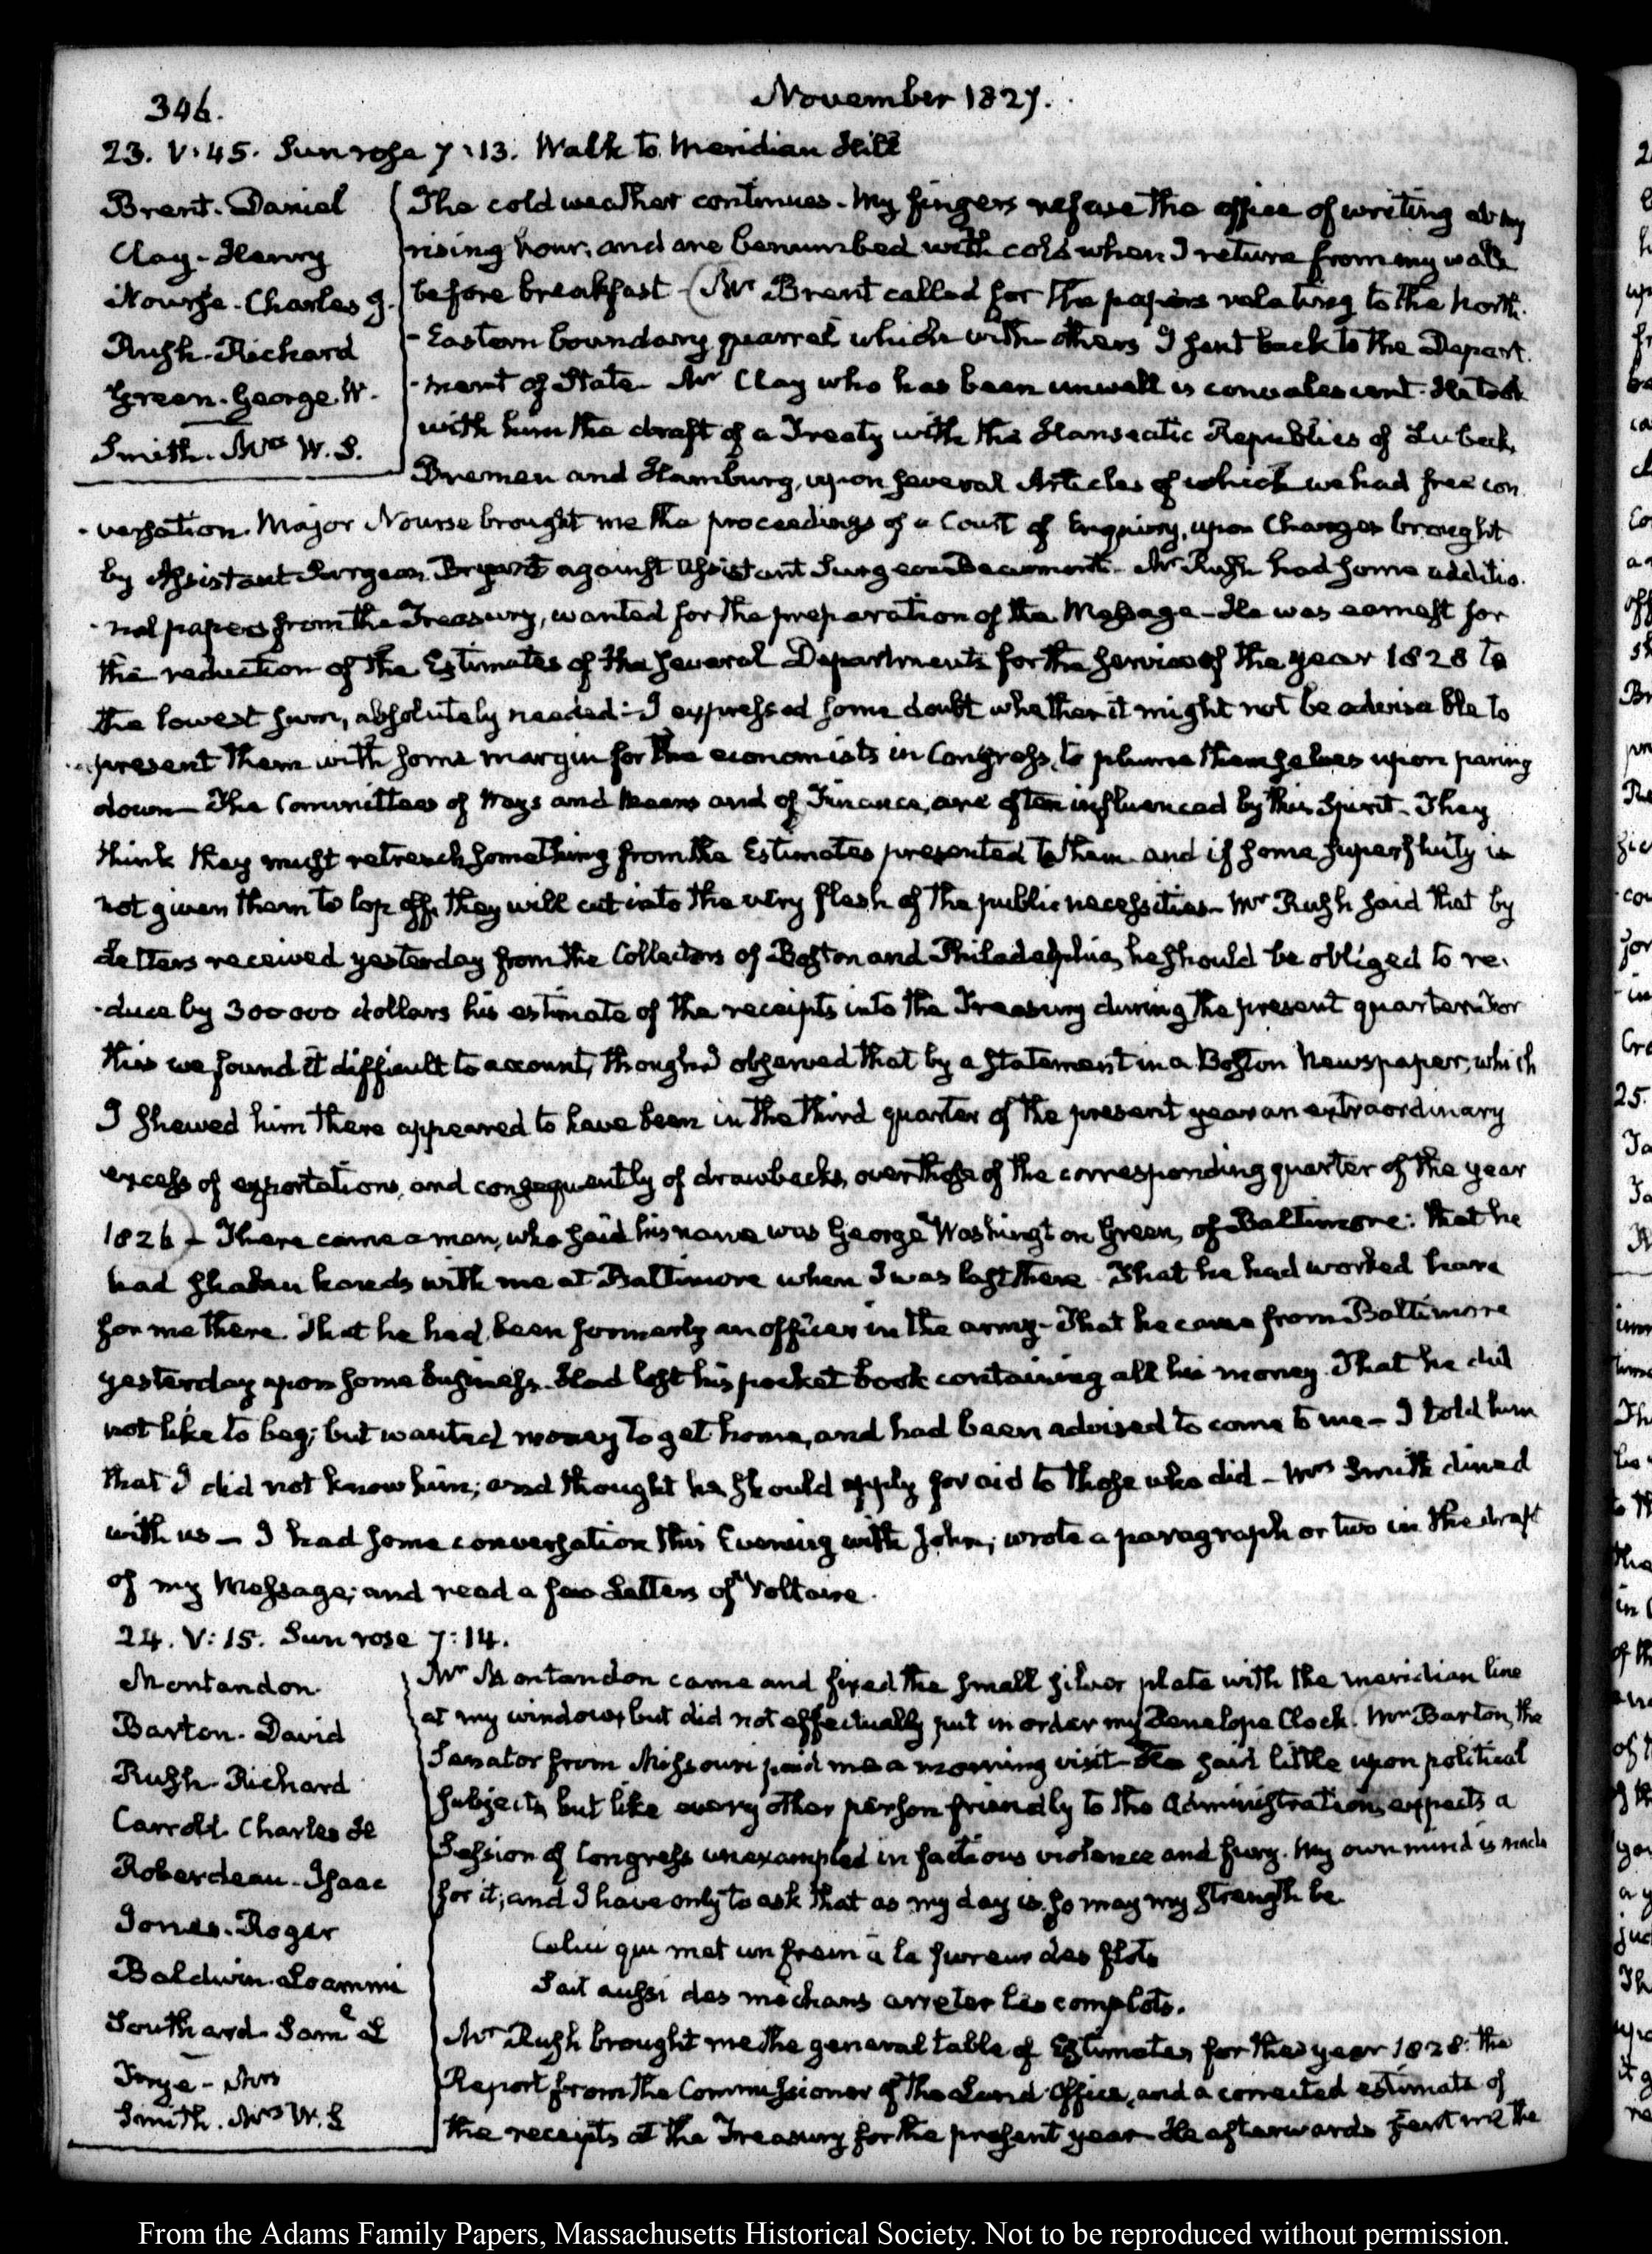 346.
November 1827.
23. V:45. Sun rose 7:13. Walk to Meridian Hill
Brent. Daniel
Clay. Henry
Nourse. Charles J.
Rush. Richard
Green. George W.
Smith. Mrs W. S.
The cold weather continues. My fingers refuse the office of writing at my
rising hour, and are benumbed with cold when I return from my walk
before breakfast. (Mr Brent called for the papers relating to the North-
-Eastern boundary quarrel which with others I sent back to the Depart-
-ment of State. Mr Clay who has been unwell is convalescent. He took
with him the draft of a Treaty with the Hanseatic Republics of Lubeck,
Bremen and Hamburg, upon several Articles of which we had free con-
-versation. Major Nourse brought me the proceedings of a Court of Enquiry, upon Charges brought
by Assistant Surgeon Bryant against Assistant Surgeon Beaumont. Mr Rush had some additio-
-nal papers from the Treasury, wanted for the preparation of the Message. He was earnest for
the reduction of the Estimates of the several Departments for the service of the year 1828 to
the lowest sum, absolutely needed: I expressed some doubt whether it might not be adviseable to
present them with some margin for the economists in Congress, to plume themselves upon paring
down. The Committees of Ways and Means and of Finance, are often influenced by this spirit. They
think they must retrench something from the Estimates presented to them and if some superfluity is
not given them to lop off, they will cut into the very flesh of the public necessities. Mr Rush said that by
Letters received yesterday from the Collectors of Boston and Philadelphia, he should be obliged to re-
-duce by 300000 dollars his estimate of the receipts into the Treasury during the present quarter. For
this we found it difficult to account, though I observed that by a statement in a Boston Newspaper, which
I shewed him there appeared to have been in the third quarter of the present year an extraordinary
excess of exportations, and consequently of drawbacks, over those of the corresponding quarter of the year
1826) - There came a man, who said his name was George Washington Green, of Baltimore: that he
had shaken hands with me at Baltimore when I was last there. That he had worked here
for me there. That he had been formerly an officer in the army. That he came from Baltimore
yesterday upon some business. Had lost his pocket book containing all his money. That he did
not like to beg; but wanted money to get home, and had been advised to come to me. I told him
that I did not know him; and thought he should apply for aid to those who did. Mrs Smith dined
with us. I had some conversation this Evening with John; wrote a paragraph or two in the draft
of my Message; and read a few Letters of Voltaire.
24. V:15. Sun rose 7:14.
Montandon
Barton. David
Rush. Richard
Carroll. Charles H
Roberdeau. Isaac
Jones. Roger
Baldwin. Loammi
Southard. Saml L
Frye - Mrs
Smith. Mrs W. S
Mr Montandon came and fixed the small silver plate with the meridian line
at my window, but did not effectually put in order my Penelope Clock. Mr Barton, the
Senator from Missouri paid me a morning visit. He said little upon political
subjects, but like every other person friendly to the Administration, expects a
Session of Congress unexampled in factious violence and fury. My own mind is made
for it; and I have only to ask that as my day is so may my strength be
Celui qui met un frein à la fureur des flots
Sait aussi des méchans arreter les complots.
Mr Rush brought me the general table of Estimates for the year 1828. the
Report from the Commissioner of the Land Office, and a corrected estimate of
the receipts at the Treasury for the present year. He afterwards sent me the
From the Adams Family Papers, Massachusetts Historical Society. Not to be reproduced without permission.